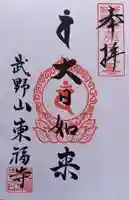 奉拝
大日如来
武野山東福寺